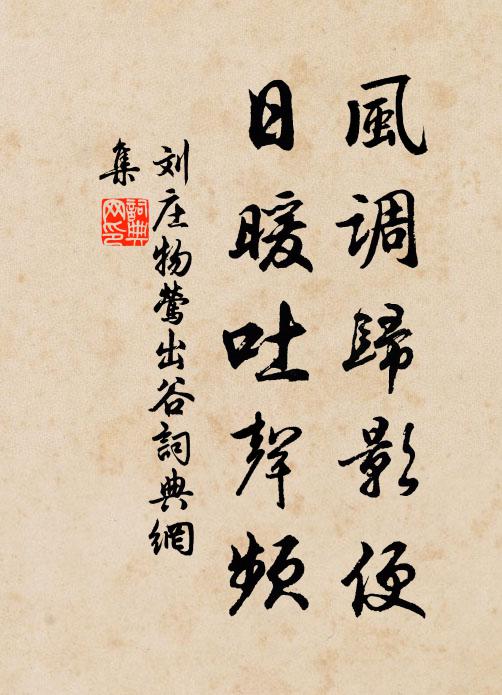 風调歸影便
日暖吐聲頻
刘庄物鶯出谷詞典網
集
詞典
网印